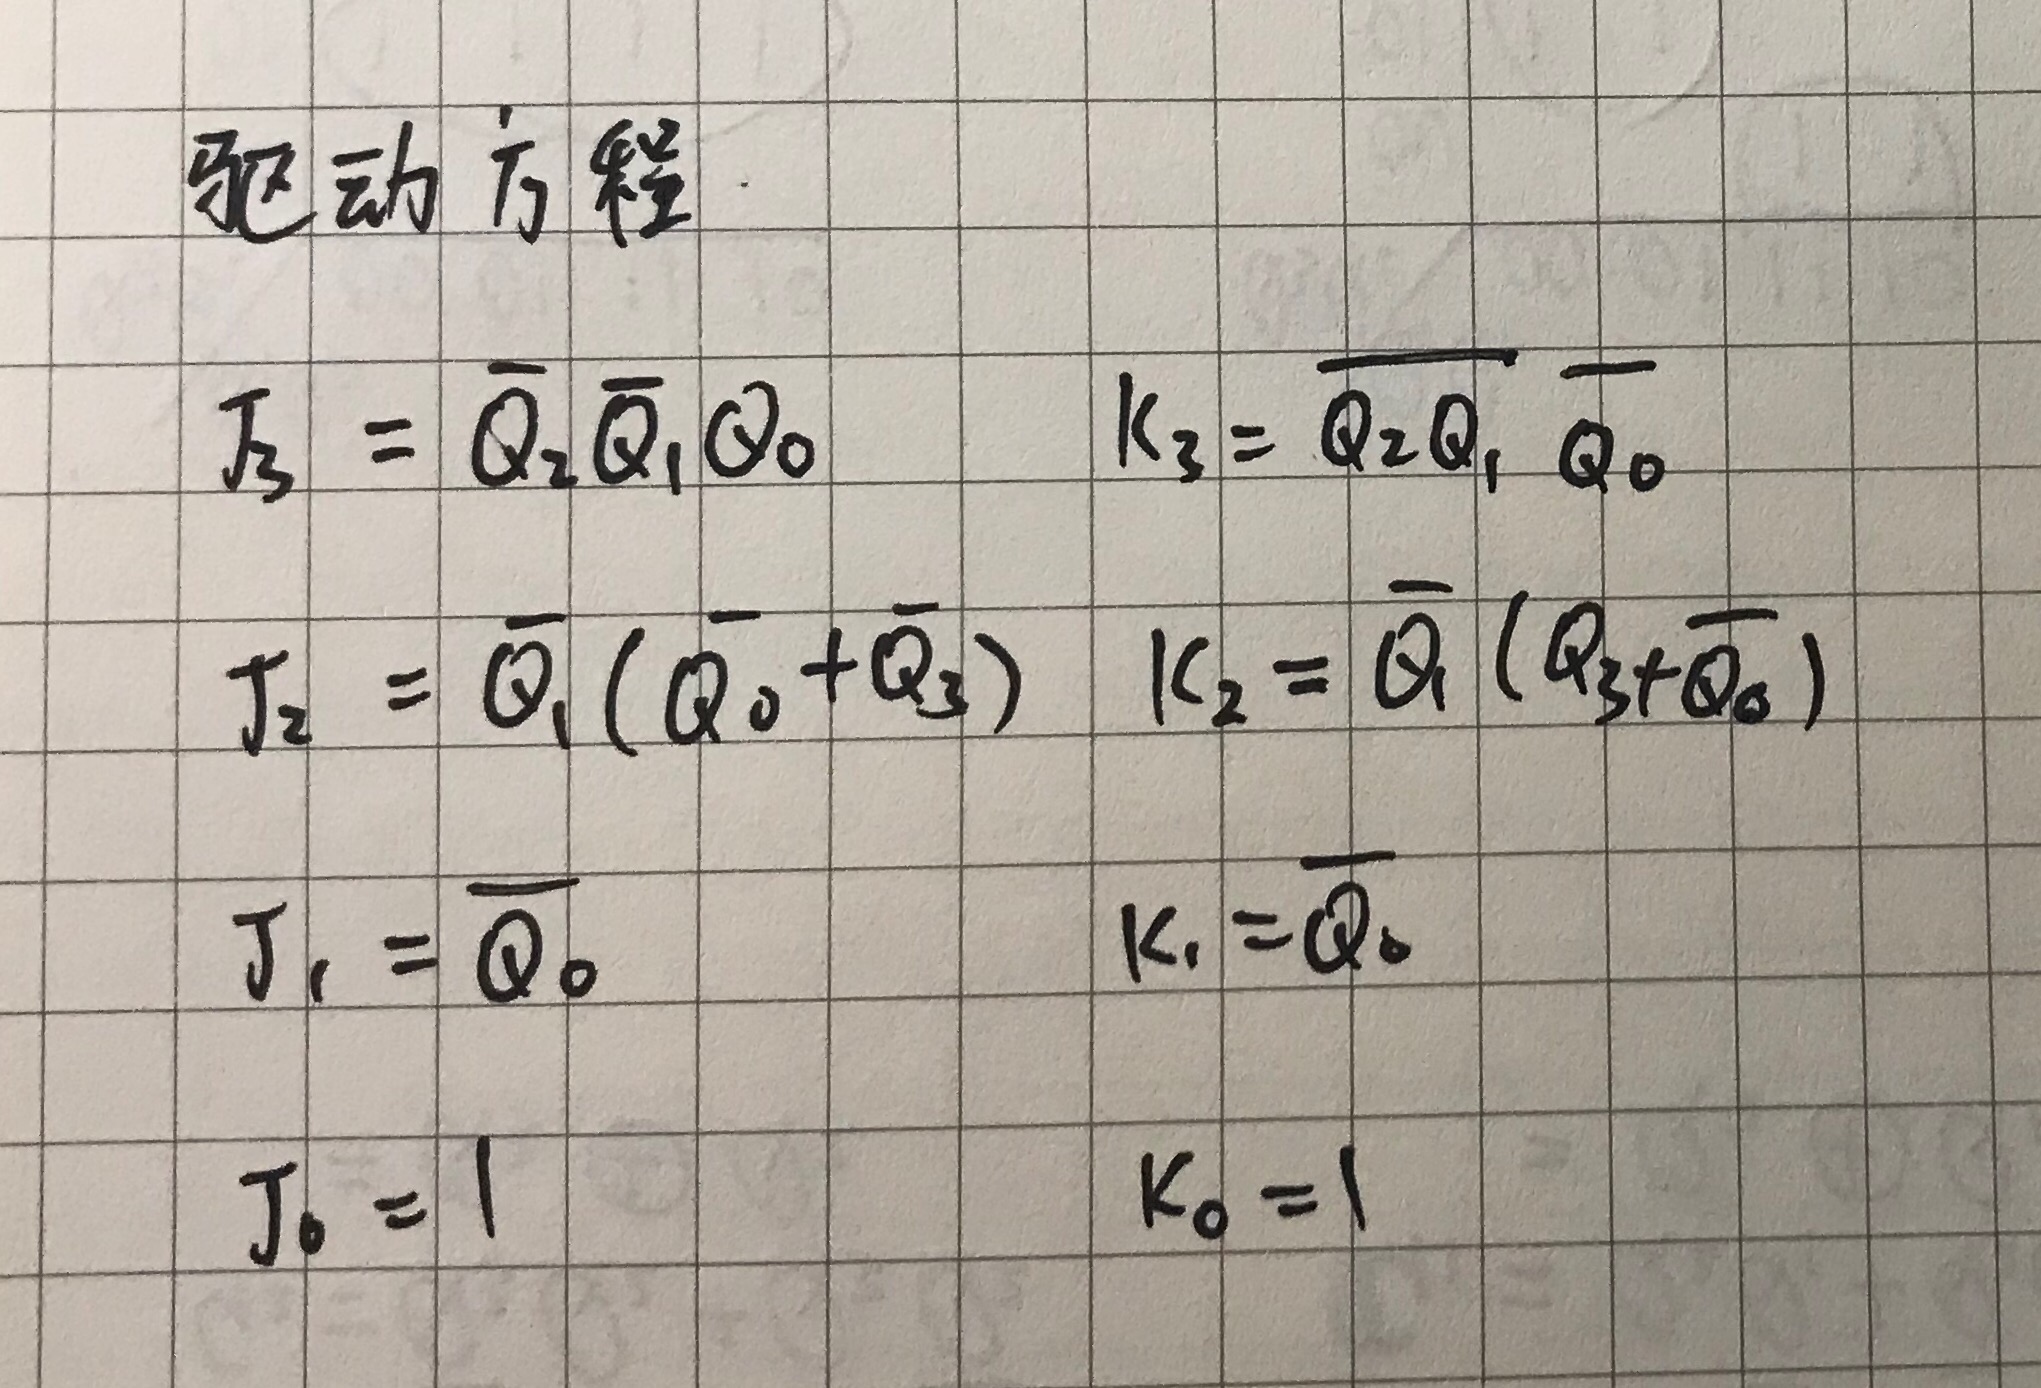 驱动方程
J₃ = Q̅₂ Q̅₁ Q₀ K₃ = \overline{Q₂Q₁} \overline{Q₀}
J₂ = Q̅₁ ( Q̅₀ + Q̅₃ ) K₂ = Q̅₁ ( Q₃ + \overline{Q₀} )
J₁ = \overline{Q₀} K₁ = \overline{Q₀}
J₀ = 1 K₀ = 1